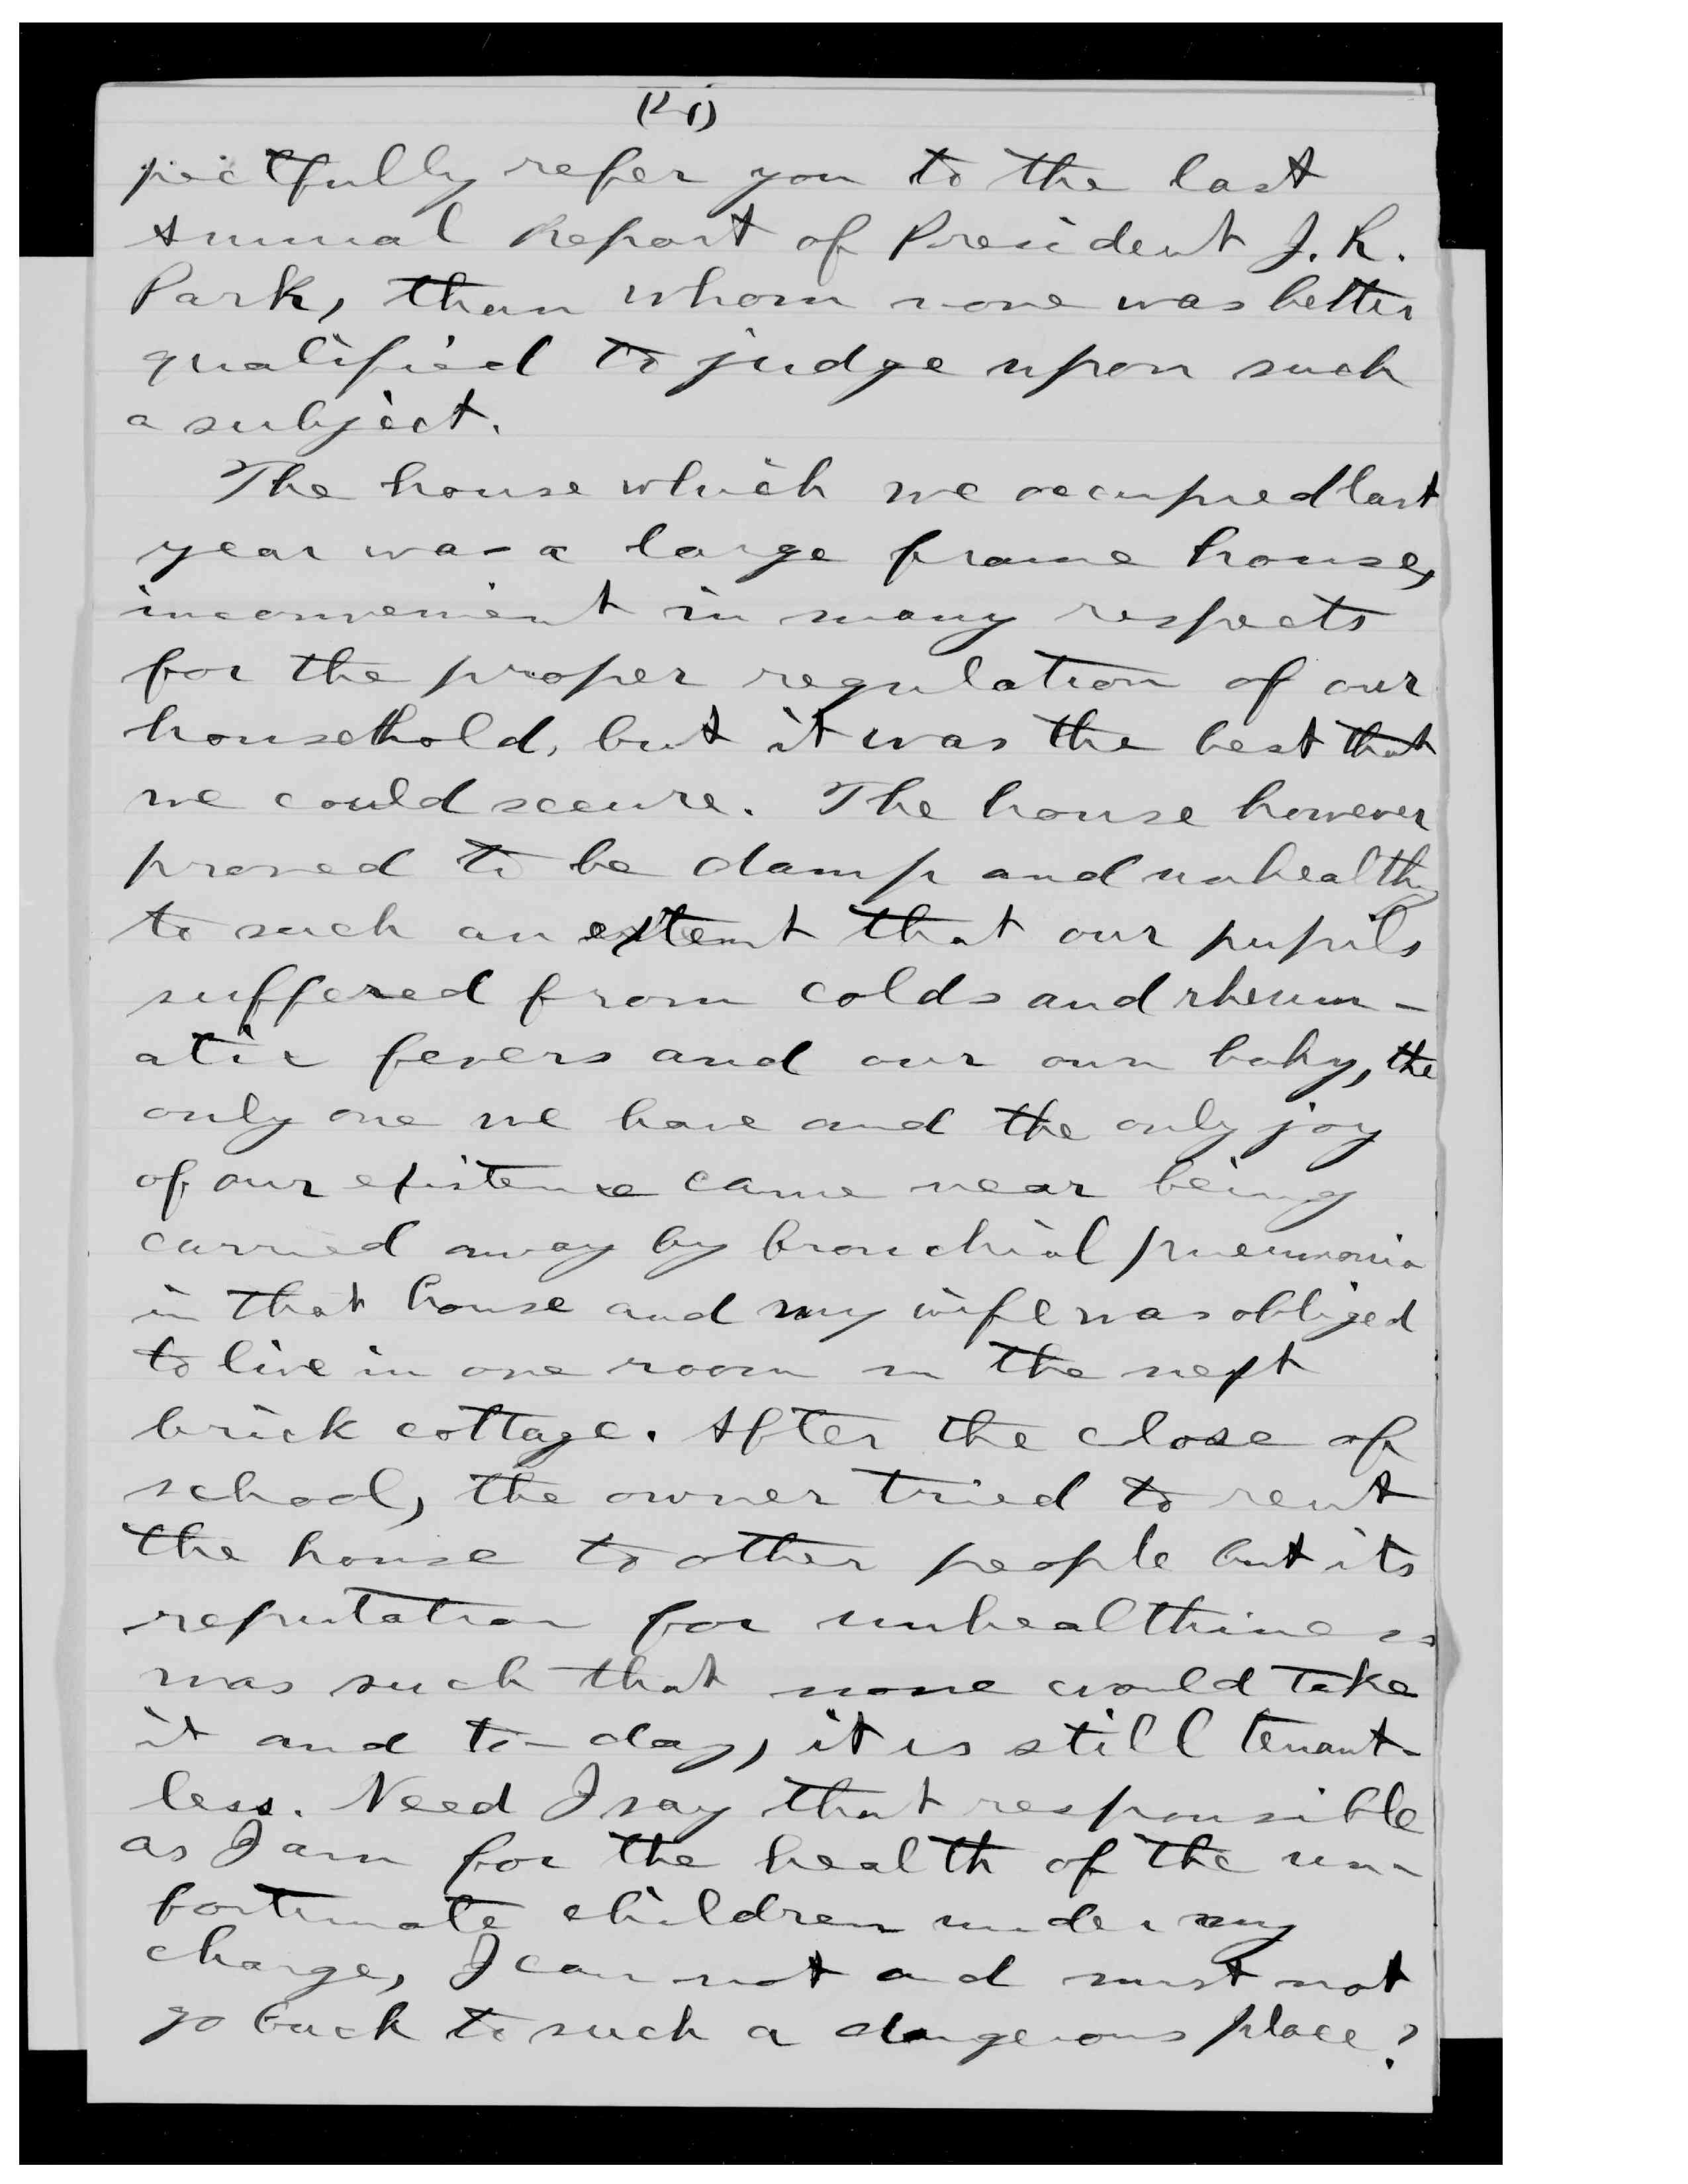 pectfully refer you to the last
Annual Report of President J. R.
Park, than whom none was better
qualified to judge upon such
a subject.
The house which we occupied last
year was a large frame house,
inconvenient in many respects
for the proper regulation of our
household, but it was the best that
we could secure. The house however
proved to be damp and unhealthy
to such an extent that our pupils
suffered from colds and rheum-
atic fevers and our own baby, the
only one we have and the only joy
of our existence came near being
carried away by bronchial pneumonia
in that house and my wife was obliged
to live in one room in the next
brick cottage. After the close of
school, the owner tried to rent
the house to other people but its
reputation for unhealthiness
was such that none would take
it and to-day, it is still tenant-
less. Need I say that responsible
as I am for the health of the un-
fortunate children under my
charge, I can not and must not
go back to such a dangerous place?